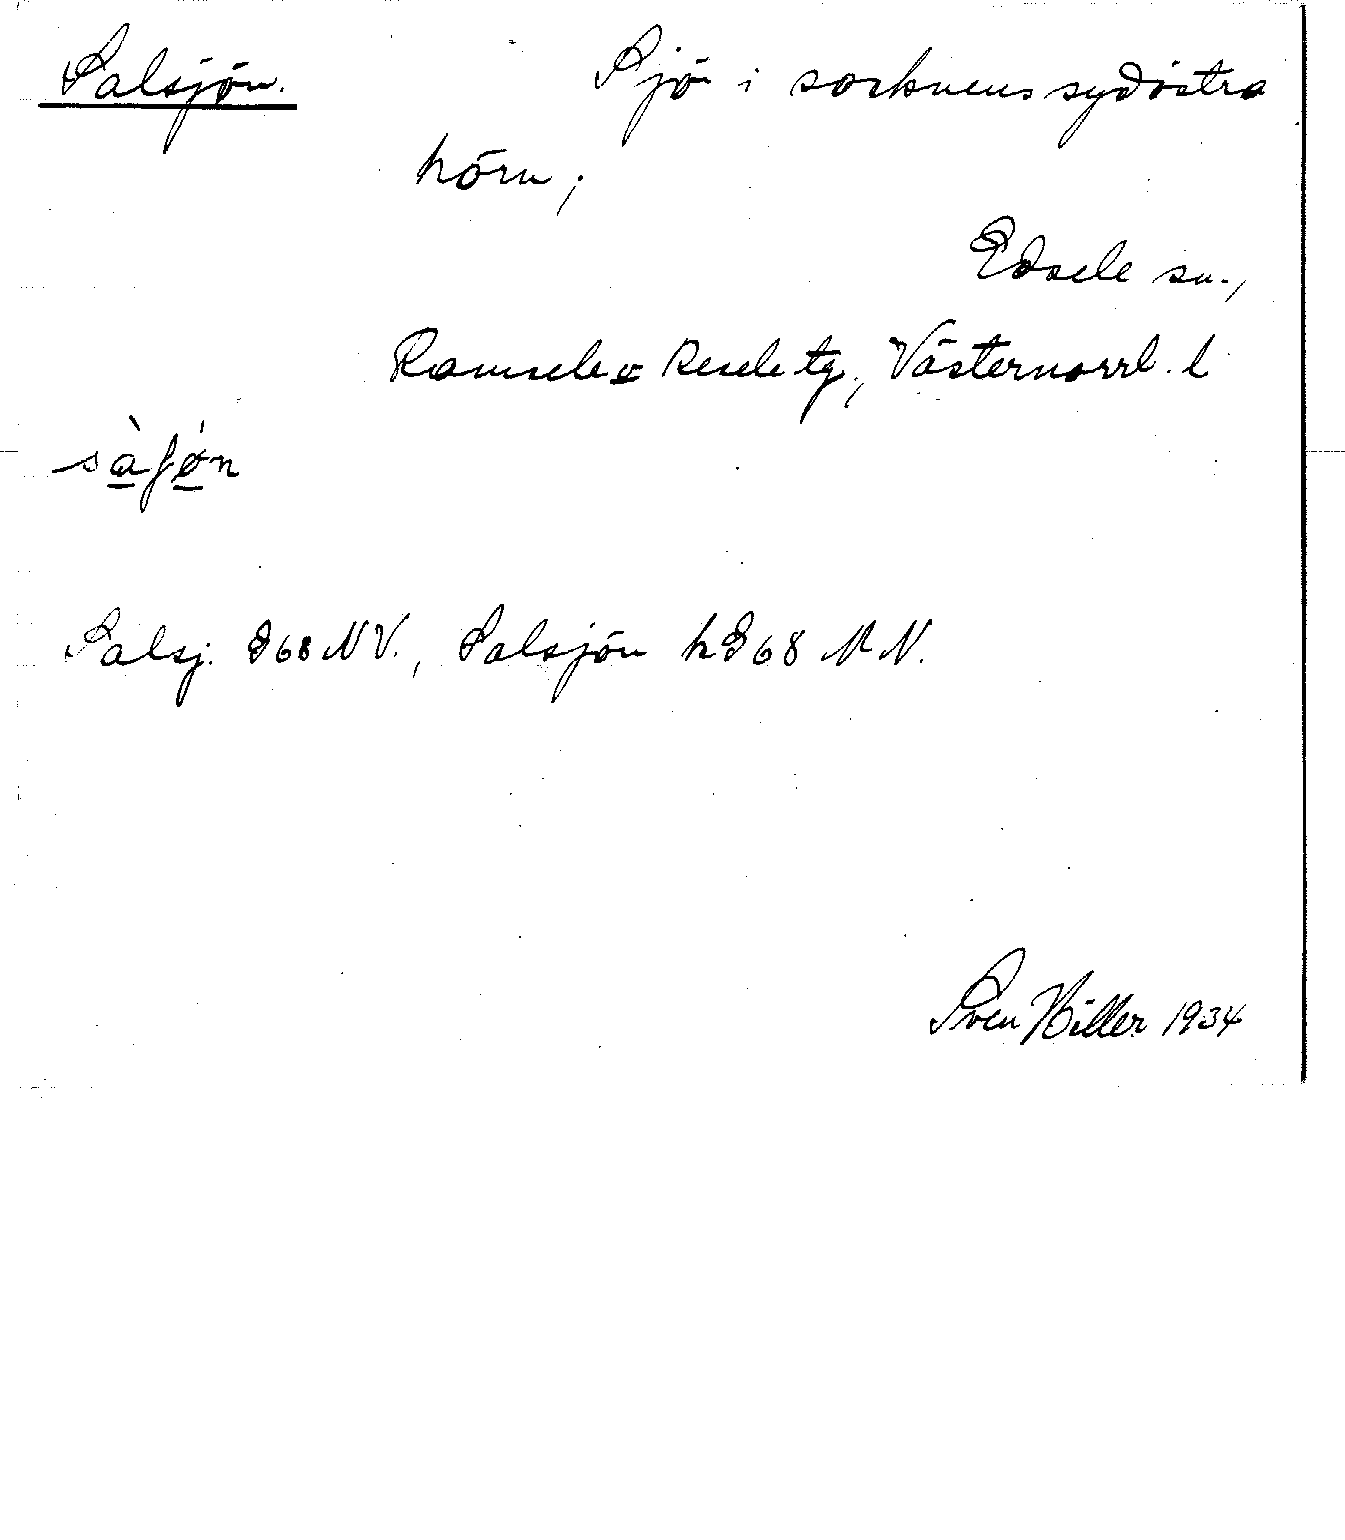 Salsjön. Sjö i socknens sydöstra
hörn;
Edsele sn.,
Ramsele o Resele tg., Västernorrl. l
sàʃǿn
Salsj. G68 NV., Salsjön hG68 MN.
Sven Hiller 1934